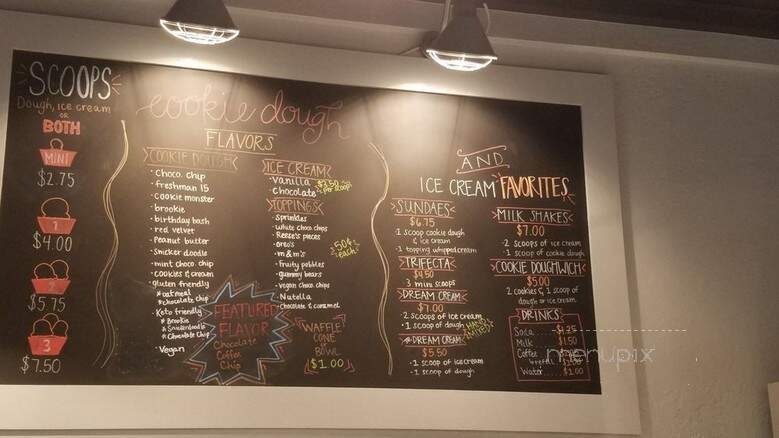 SCOOPS
Dough, ice cream
or
BOTH
MINI
$2.75
1
$4.00
2
$5.75
3
$7.50
cookie dough
FLAVORS
COOKIE DOUGH
· choco. chip
· freshman 15
· cookie monster
· brookie
· birthday bash
· red velvet
· Peanut butter
· snicker doodle
· mint choco. chip
· cookies & cream
· gluten friendly
* oatmeal
* chocolate chip
· Keto friendly
* Brookie
* Snickerdoodle
* Chocolate Chip
· Vegan
ICE CREAM
· Vanilla
· Chocolate
$3.50
per scoop
TOPPINGS
· sprinkles
· white choco chips
· Reese's pieces
· oreo's
· m & m's
· Fruity pebbles
· gummy bears
· vegan choco chips
· Nutella
· chocolate & caramel
50¢
each
FEATURED
FLAVOR
Chocolate
Coffee
Chip
WAFFLE
CONE
or
BOWL
$1.00
AND
ICE CREAM FAVORITES
SUNDAES
$6.75
· 1 scoop cookie dough
& ice cream
· 1 topping whipped cream
TRIFECTA
$4.50
3 mini scoops
DREAM CREAM
$7.00
· 2 scoops of ice cream
· 1 scoop of dough
DREAM CREAM
$5.50
· 1 scoop of ice cream
· 1 scoop of dough
MILK SHAKES
$7.00
· 2 scoops of ice cream
· 1 scoop of cookie dough
COOKIE DOUGHWICH
$5.00
2 cookies & 1 scoop of
dough or ice cream
DRINKS
Soda $1.25
Milk $1.50
Coffee
Water $1.00
menupix